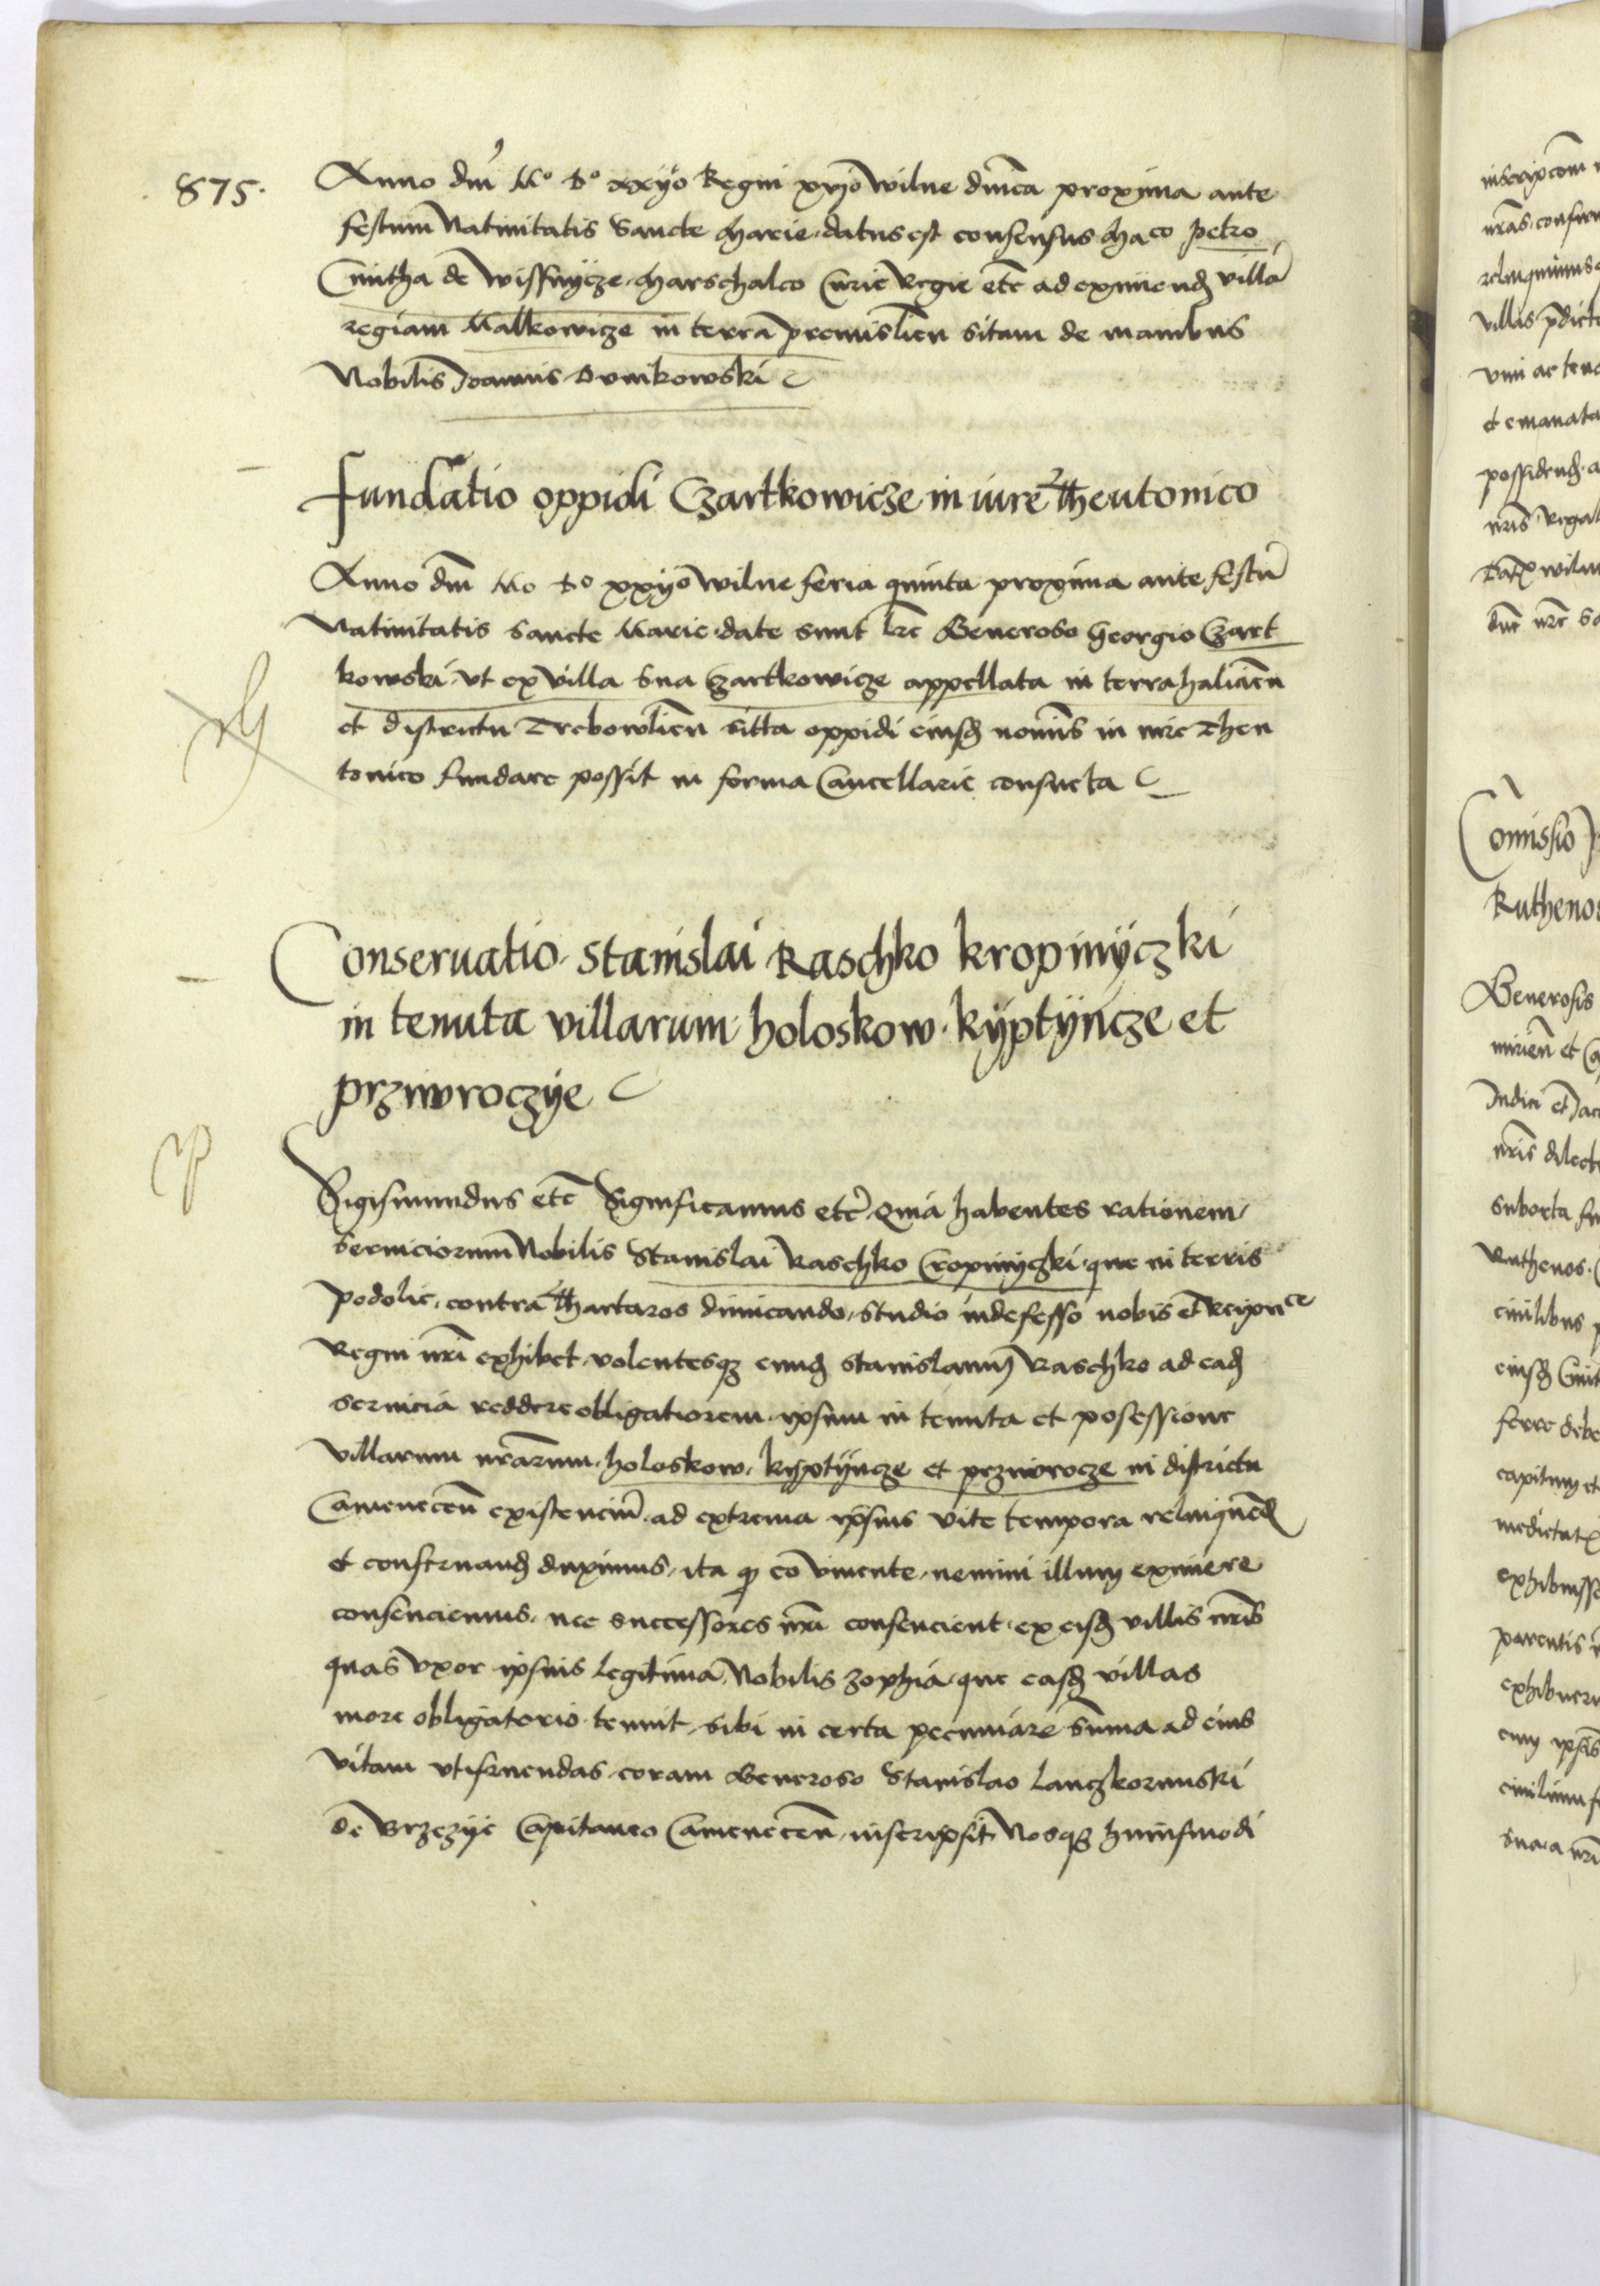 875.
Anno dni Mo do xxijo Regni xvjo wilne dnica proxima ante
festum Natiuitatis Sancte Marie datus est consensus Maco petro
Cmitha de Wissnycze Marschalco Curie Regie etc ad eximend villa
regiam Malkowicze in terra premislien sitam de manibus
Nobilis Joannis Dunikowski
Fundatio oppidi Czartkowicze in iure Theutonico
Anno dni Mo do xxijo Wilne feria quinta proxima ante festu
Natiuitatis Sancte Marie date sunt lre Generoso Georgio Czart
kowski vt ex villa sua Czartkowicze appellata in terra halicien
et districtu Trebowlien sitta oppidi eiusd nominis in iure Theu
tonico fundare possit in forma Cancellarie consueta
Conseruatio Stanislai Raschko kropiniyczki
in tenuta villarum holoskow kyptyncze et
przivroczye
Sigismundus etc Significamus etc Quia habentes rationem
seruiciorum Nobilis Stanislai Raschko Cropiniyczki que in terris
podolie contra Thartaros dimicando studio indefesso nobis et Reipce
Regni nri exhibet volentesq eund Stanislaum Raschko ad ead
seruicia reddere obligatiorem ipsum in tenuta et posessione
villarum nrarum holoskow kyptyncze et przivrocze in districtu
Camenecen existenciu ad extrema ipsius vite tempora relinquend
et conseruand duximus ita q eo viuente nemini illum eximere
consenciemus nec successores nri consencient ex eisd villis nris
quas vxor ipsius legitima Nobilis Zophia que easd villas
more obligatorio tenuit sibi in certa pecuniare suma ad eius
vitam vtifruendas coram Generoso Stanislao lanczkorunski
de Brzezye Capitaneo Camenecen inscripsit Nosq huiusmodi
Comissio
Ruthenos
Generosis